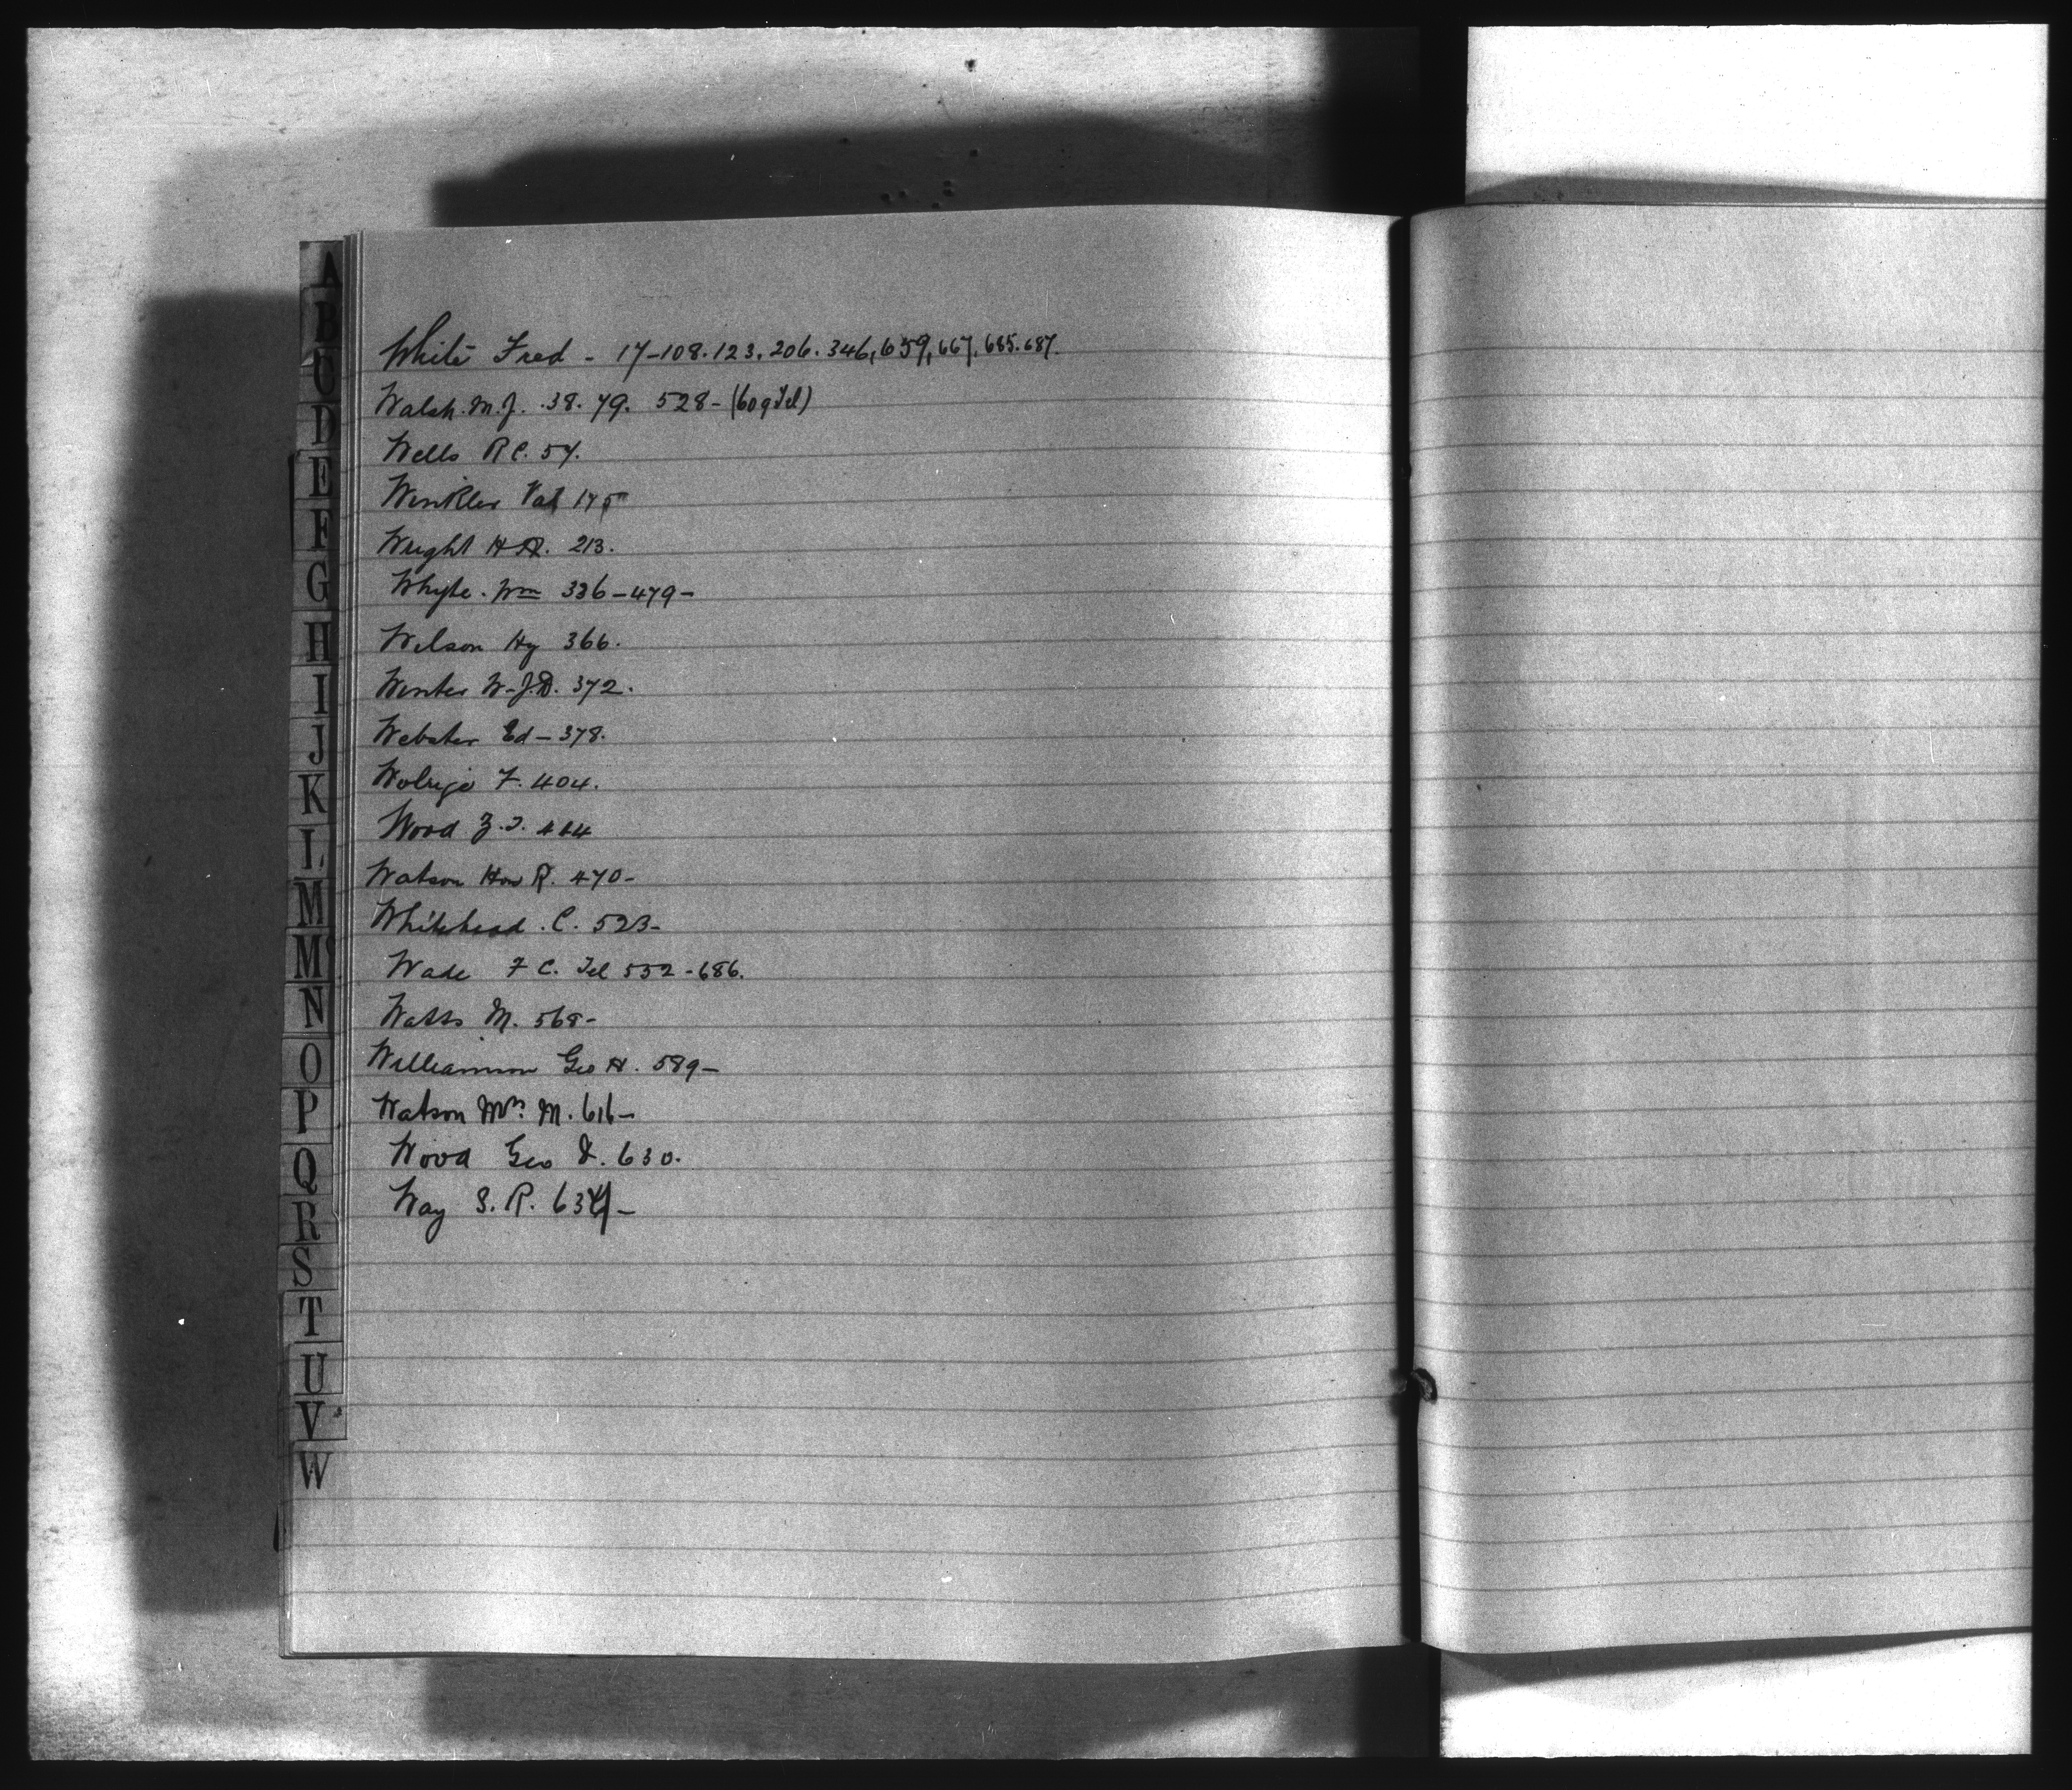 A
B
C
D
E
F
G
H
I
J
K
L
M
Mc
N
O
P
Q
R
S
T
U
V
W
White Fred - 17-108.123.206.346,659,667,685.687.
Walsh. M.J. .38. 79. 528- (609 Tel)
Wells R C. 57.
Winkler Val 175
Wright H A. 213.
Whyte. Wm 336-479-
Wilson Hy 366.
Winter W-J.D. 372.
Webster Ed - 378.
Wolrige F. 404.
Wood Z.T.
Watson Hon R. 470-
Whitehead. C. 523-
Wade F C. Tel 532-686.
Watts M. 568-
Williamson Geo H. 589-
Watson Mrs. M. 616-
Wood Geo D. 630.
Way S. R.